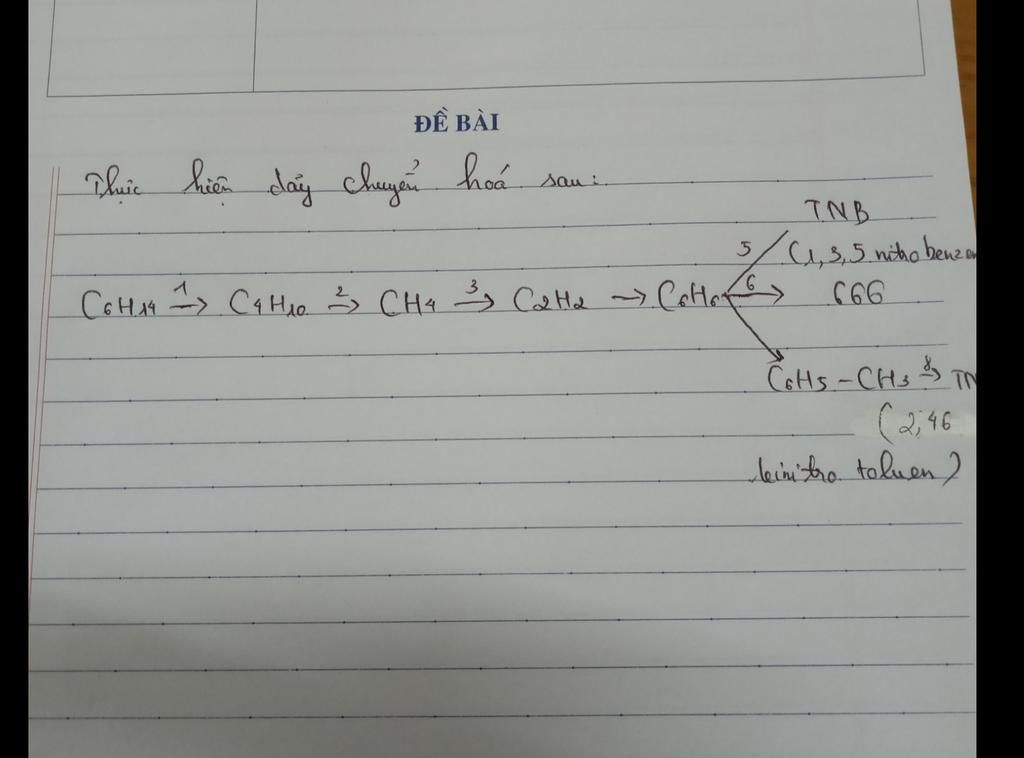 ĐỀ BÀI
Thực hiện dãy chuyển hoá sau:
TNB
5 (1,3,5 nitro benzen
C6H14 1→ C4H10 2→ CH4 3→ C2H2 → C6H6 6→ 666
C6H5 - CH3 8→ TN
(2,46
toluen)